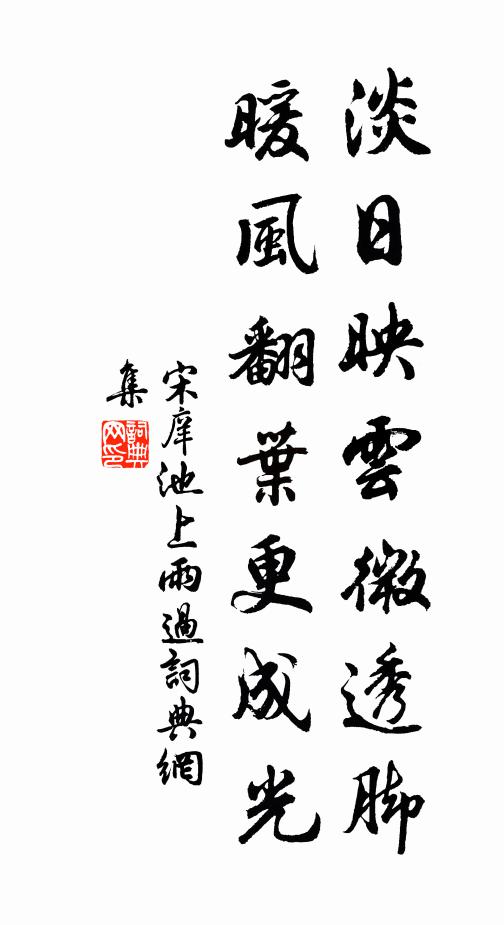 淡日映雲微透脚
暖風翻葉更成光
宋庠池上雨過詞典網
集
詞典
网印